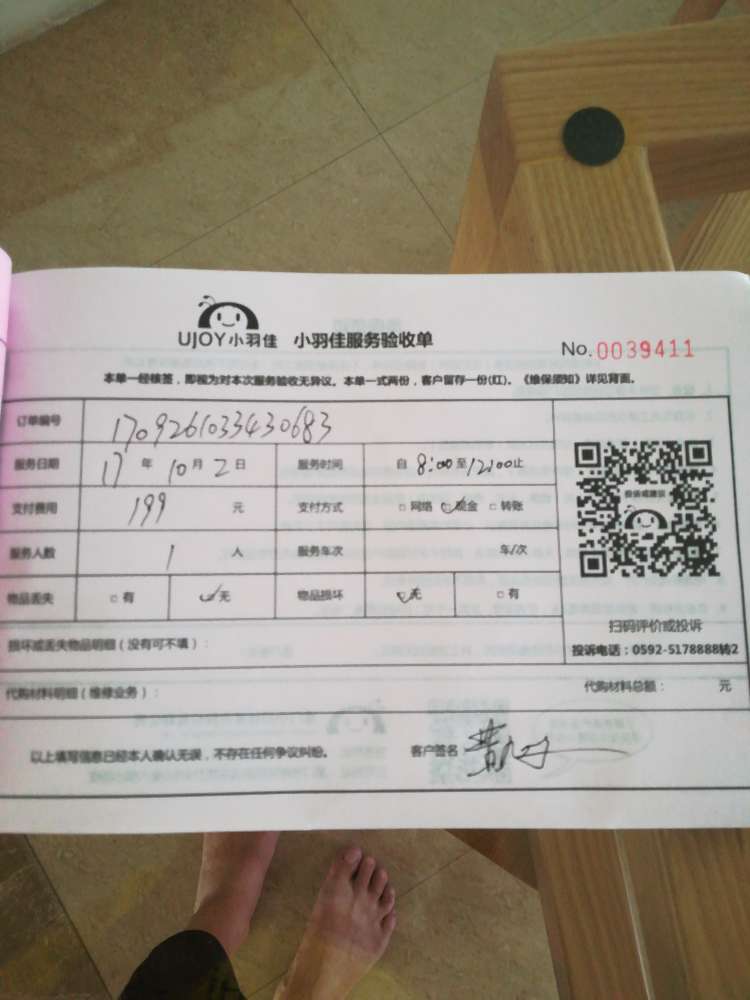 UJOY小羽佳 小羽佳服务验收单 No.0039411
本单一经核签，即视为对本次服务验收无异议。本单一式两份，客户留存一份(红)。《维保须知》详见背面。
订单编号 1709261033430683
服务日期 17 年 10 月 2 日 服务时间 自 8:00 至 12:00 止
支付费用 199 元 支付方式 □网络 ☑现金 □转账
服务人数 1 人 服务车次 车/次
物品丢失 □有 ☑无 物品损坏 ☑无 □有
投诉或建议
扫码评价或投诉
投诉电话：0592-5178888转2
损坏或丢失物品明细（没有可不填）：
代购材料明细（维修业务）： 代购材料总额： 元
以上填写信息已经本人确认无误，不存在任何争议纠纷。 客户签名